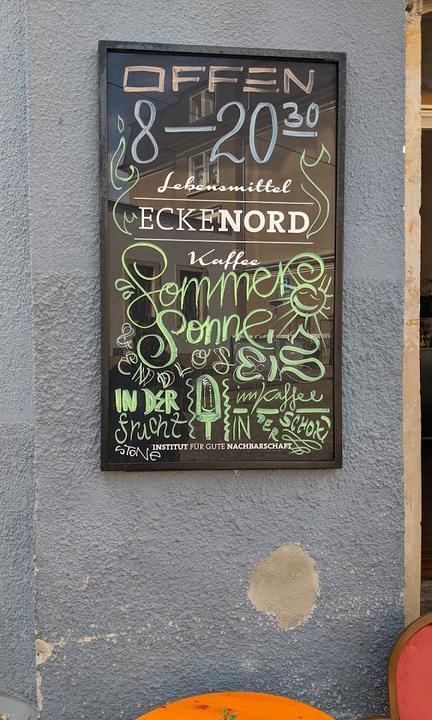 OFFEN
8—20³⁰
Lebensmittel
ECKENORD
Kaffee
Sommer
Sonne,
EIS
IN DER
frucht
im Kaffee
IN DER SCHOKI
INSTITUT FÜR GUTE NACHBARSCHAFT